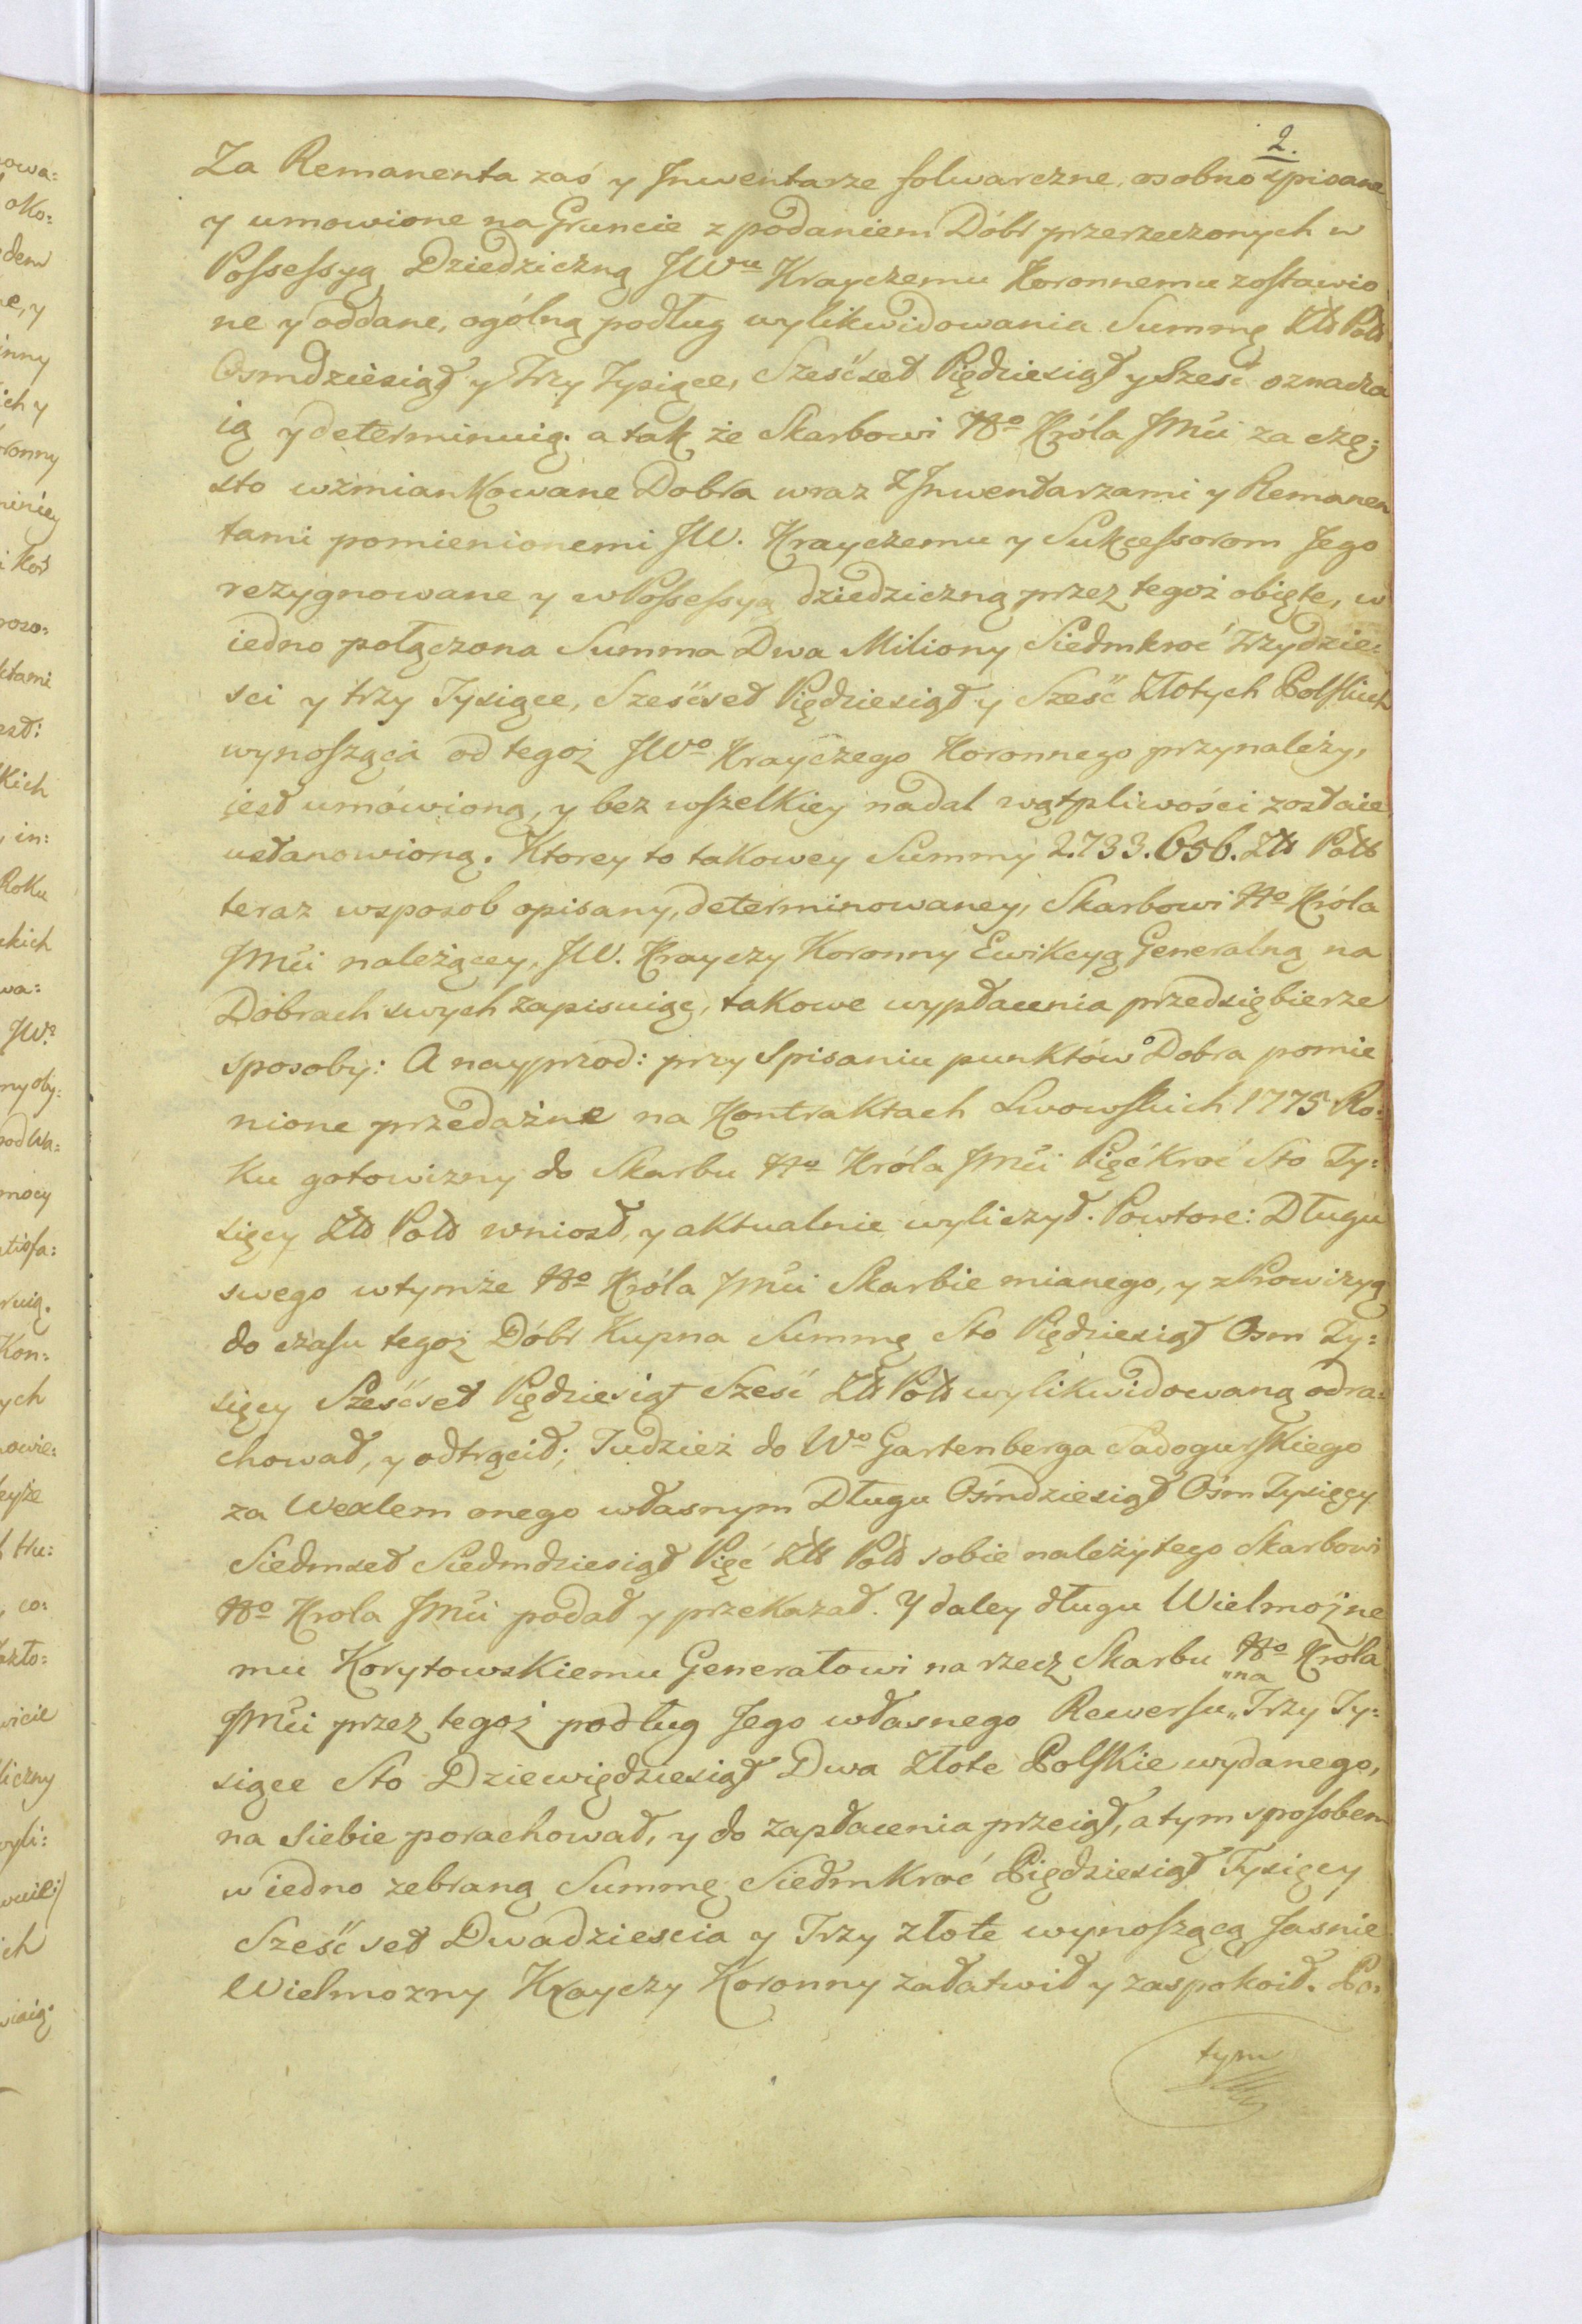 2.
Za Remanenta zaś y Jnwentarze folwarczne, osobno spisane
y umowione na Gruncie z podaniem Dóbr przerzeczonych w
Possessyą Dziedziczną JWu Krayczemu Koronnemu zostawio
ne y oddane, ogólną podług wylikwidowania Summę Złł Poll
Osmdziesiąt y Trzy Tysiące, Sześćset Pięדziesiąt y Szesć oznacza
ią y determinuią. a tak że Skarbowi No Króla Jmći za czę:
sto wzmiankowane Dobra wraz z Jnwentarzami y Remanen
tami pomienionemi JW. Krayczemu y Sukcessorom Jego
rezygnowane y w Possessyą dziedziczną przez tegoż obięte, w
iedno połączona Summa Dwa Miliony Siedmkroć Trzydzie:
sci y trzy Tysiące, Sześćset Piędziesiąt y Sześć Złotych Polskich
wynosząca od tegoż JWo Krayczego Koronnego przynależy,
iest umówioną, y bez wszelkiey nadal wątpliwości zostaie
ustanowioną. Ktorey to takowey Summy 2.733.656. Złł Poll
teraz wsposob opisany, determinowaney, Skarbowi No Króla
Jmći należącey, JW. Krayczy Koronny Ewikcyą Generalną na
Dobrach swych zapisuiąc, takowe wypłacenia przedsiębierze
sposoby: A nayprzod: przy Spisaniu punktów o Dobra pomie
nione przedażne na Kontraktach Lwowskich 1775 Ro:
ku gotowizny do Skarbu No Króla Jmći Pięćkroć Sto Ty:
sięcy Złł Poll wniosł, y aktualnie wyliczył. Powtore: Długu
swego wtymże No Króla Jmći Skarbie mianego, y z Prowizyą
do czasu tegoż Dóbr Kupna Summę Sto Piędziesiąt Osm Ty:
sięcy Sześćset Piędziesiąt Sześć Złł Poll wylikwidowaną odra:
chował, y odtrącił; Tudzież do Wo Gartenberga Sadogurskiego
za Wexlem onego własnym Długu Ośmdziesiąt Ośm Tysięcy
Siedmset Siedmdziesiąt Pięć Złł Poll sobie należytego Skarbowi
No Krola Jmći podał y przekazał. Y daley długu Wielmożne
mu Korytowskiemu Generałowi na rzecz Skarbu No Krola
Jmći przez tegoż podług Jego własnego Rewersu „na „Trzy Ty:
siące Sto Dziewięćdziesiąt Dwa Złote Polskie wydanego,
na siebie porachował, y do zapłacenia przeiął, a tym sposobem
w iedno zebraną Summę Siedmkroć Pięćdziesiąt Tysięcy
Sześćset Dwadziescia y Trzy złote wynoszącą Jasnie
Wielmozny Krayczy Koronny załatwił y zaspokoił. Po:
tym